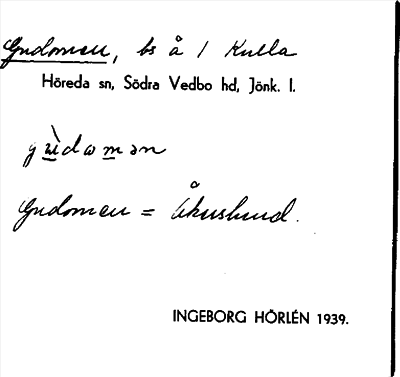 Gudomen, bs å / Kulla
Höreda sn, Södra Vedbo hd, Jönk. l.
gùdomən
Gudomen = Åkuslund.
INGEBORG HÖRLÉN 1939.